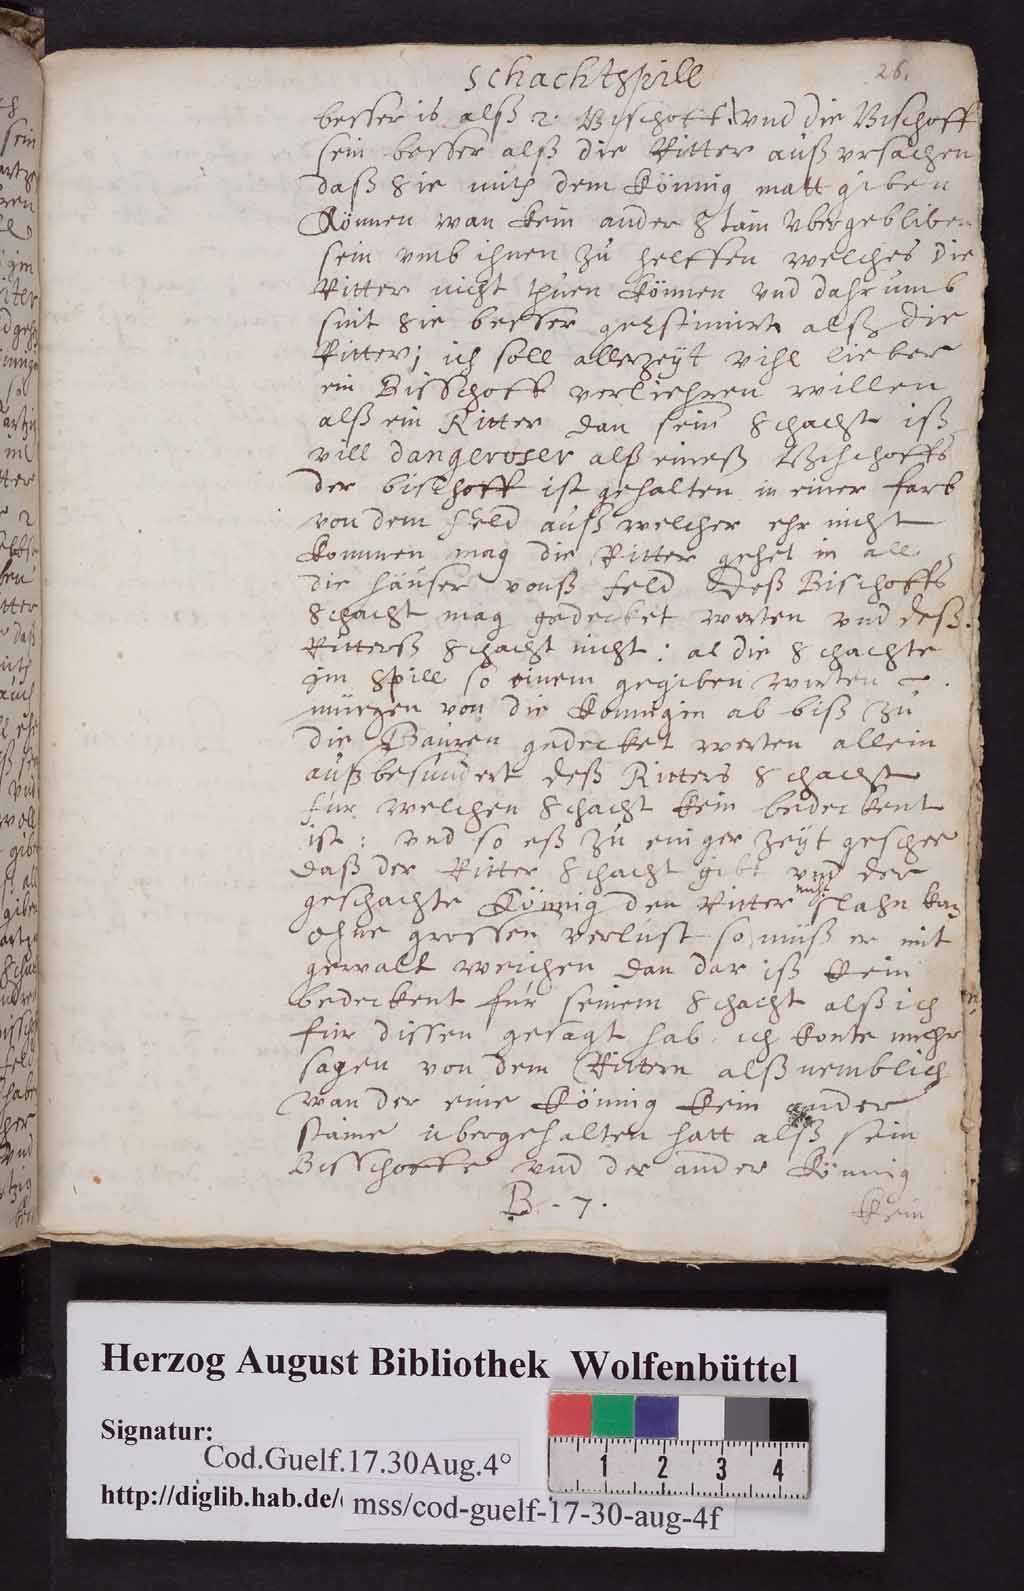 schachtspill
26.
besser is alß 2. Bischoff. vnd die Bischoff
sein besser alß die Ritter auß vrsachen
daß sie mith dem König matt giben
Können wan kein ander stain vbergebliben
sein vmb ihnen zu helffen welches die
Ritter nicht thuen können vnd dahrumb
sint sie besser geestimirt alß die
Ritter; ich soll allerzeyt vihl lieber
ein Bisschoff verliehren willen
alß ein Ritter dan sein schacht iß
vill dangeroser alß eineß Bischoffs
der bischoff ist gehalten in einer farb
von dem feld auß welcher ehr nicht
kommen mag die Ritter gehet in all
die häuser vonß feld Deß Bischoffs
schacht mag gedecket werten vnd deß
Ritterß schacht nicht: al die schachte
im spill so einem gegiben wirten
mürgen von die Konnigin ab biß zu
die Bauren gedecket werten allein
außbesundert deß Ritters schacht
für welchen schacht kein bedeckent
ist: vnd so eß zu einiger zeyt geschee
daß der Ritter schacht gibt vnd der
geschachte König den Ritter nicht slahn kan
ohne grossen verlust so muß er mit
gewalt weichen dan dar iß kein
bedeckent für seinem schacht alß ich
für dissen gesagt hab. ich konte mehr
sagen von dem Rittern alß nemblich
wan der eine König kein ander
staine übergehalten hatt alß sein
Bisschoffe vnd der ander König
B - 7.
kein
Herzog August Bibliothek Wolfenbüttel
Signatur:
Cod.Guelf.17.30Aug.4°
http://diglib.hab.de/ mss/cod-guelf-17-30-aug-4f
1 2 3 4